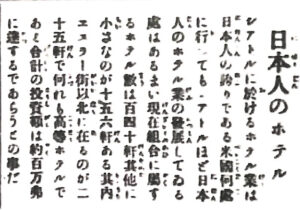 日本人のホテル
シアトルに於けるホテル業は
日本人の誇りである米國何處
に行つてもシアトルほど日本
人のホテル業の發展してゐる
處はあるまい現在組合に屬す
るホテル數は百四十軒其他に
小さなのが十五六軒ある其内
エスラー街以北に在るのが二
十五軒で何れも高等ホテルで
あと合計の投資額は約百万弗
に達するであらうとの事だ